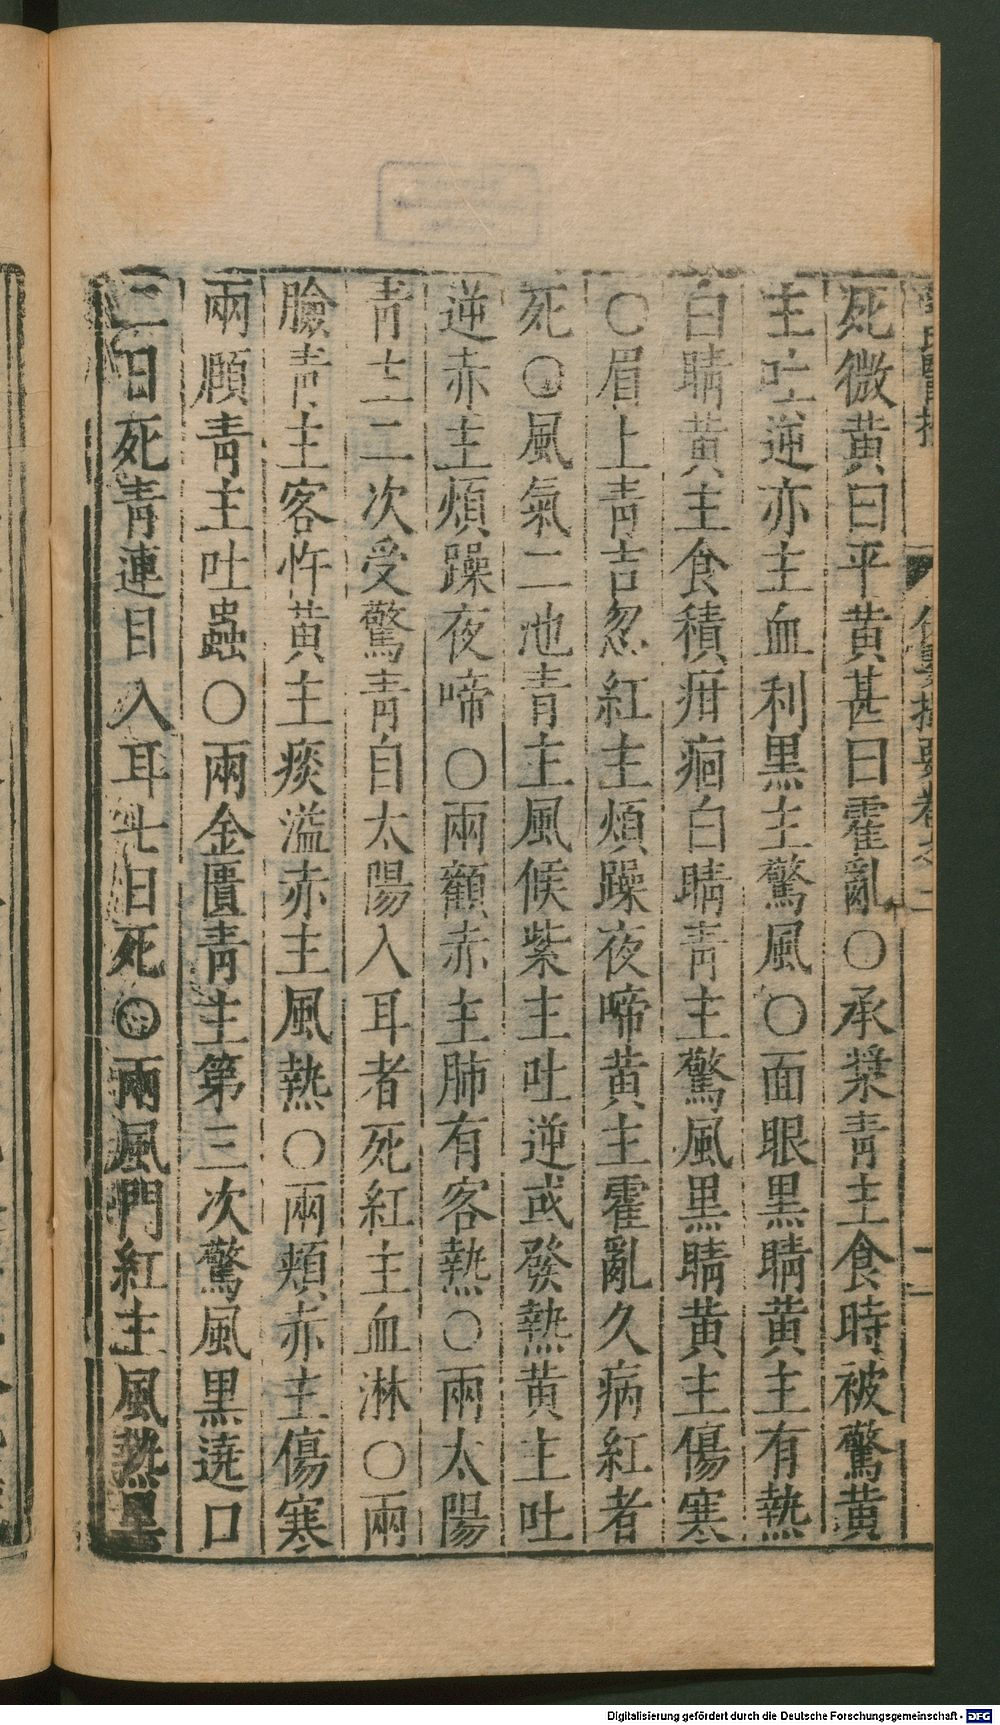 死微黄曰平黄甚曰霍亂○承漿青主食時被驚黄
主吐逆亦主血利黑主驚風○面眼黒睛黄主有熱
白睛黄主食積疳痼白睛青主驚風黒睛黄主傷寒
○眉上青吉忽紅主煩躁夜啼黄主霍亂久病紅者
死○風氣二池青主風候紫主吐逆或發熱黄主吐
逆赤主煩躁夜啼○兩顴赤主肺有客熱○兩太陽
青主二次受驚青自太陽入耳者死紅主血淋○兩
臉青主客忤黄主痰溢赤主風熱○兩頬赤主傷寒
兩頥青主吐蟲○兩金匱青主第三次驚風黒遶口
二日死青連目入耳七日死○兩風門紅主風熱黒
Digitalisierung gefördert durch die Deutsche Forschungsgemeinschaft - DFG